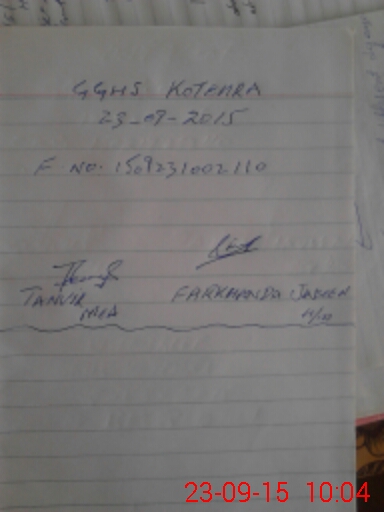 GGHS KOTEHRA
23-09-2015
F NO. 1509231002110
TANVIR
FARKHANDA JABEEN
23-09-15 10:04